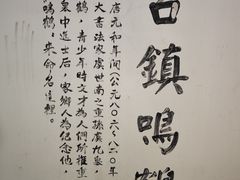 古鎮鳴鶴
唐元和年間（公元八〇六-八二〇年
大書法家虞世南之重孫虞九皋，
鶴，青少年時文才為人們所推重
舉中進士后，家鄉人為紀念他，
鳴鶴，來命名這裡。